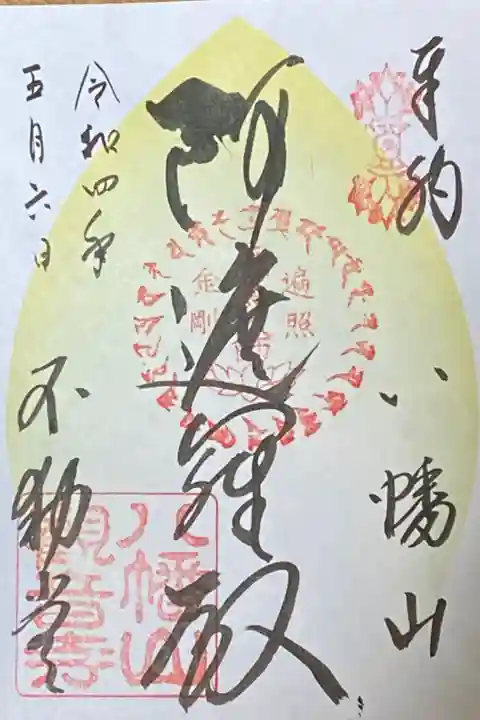 奉拝
八幡山
阿遮羅殿
令和四年
五月六日
不動堂
遍照
金剛
八幡山
観音寺